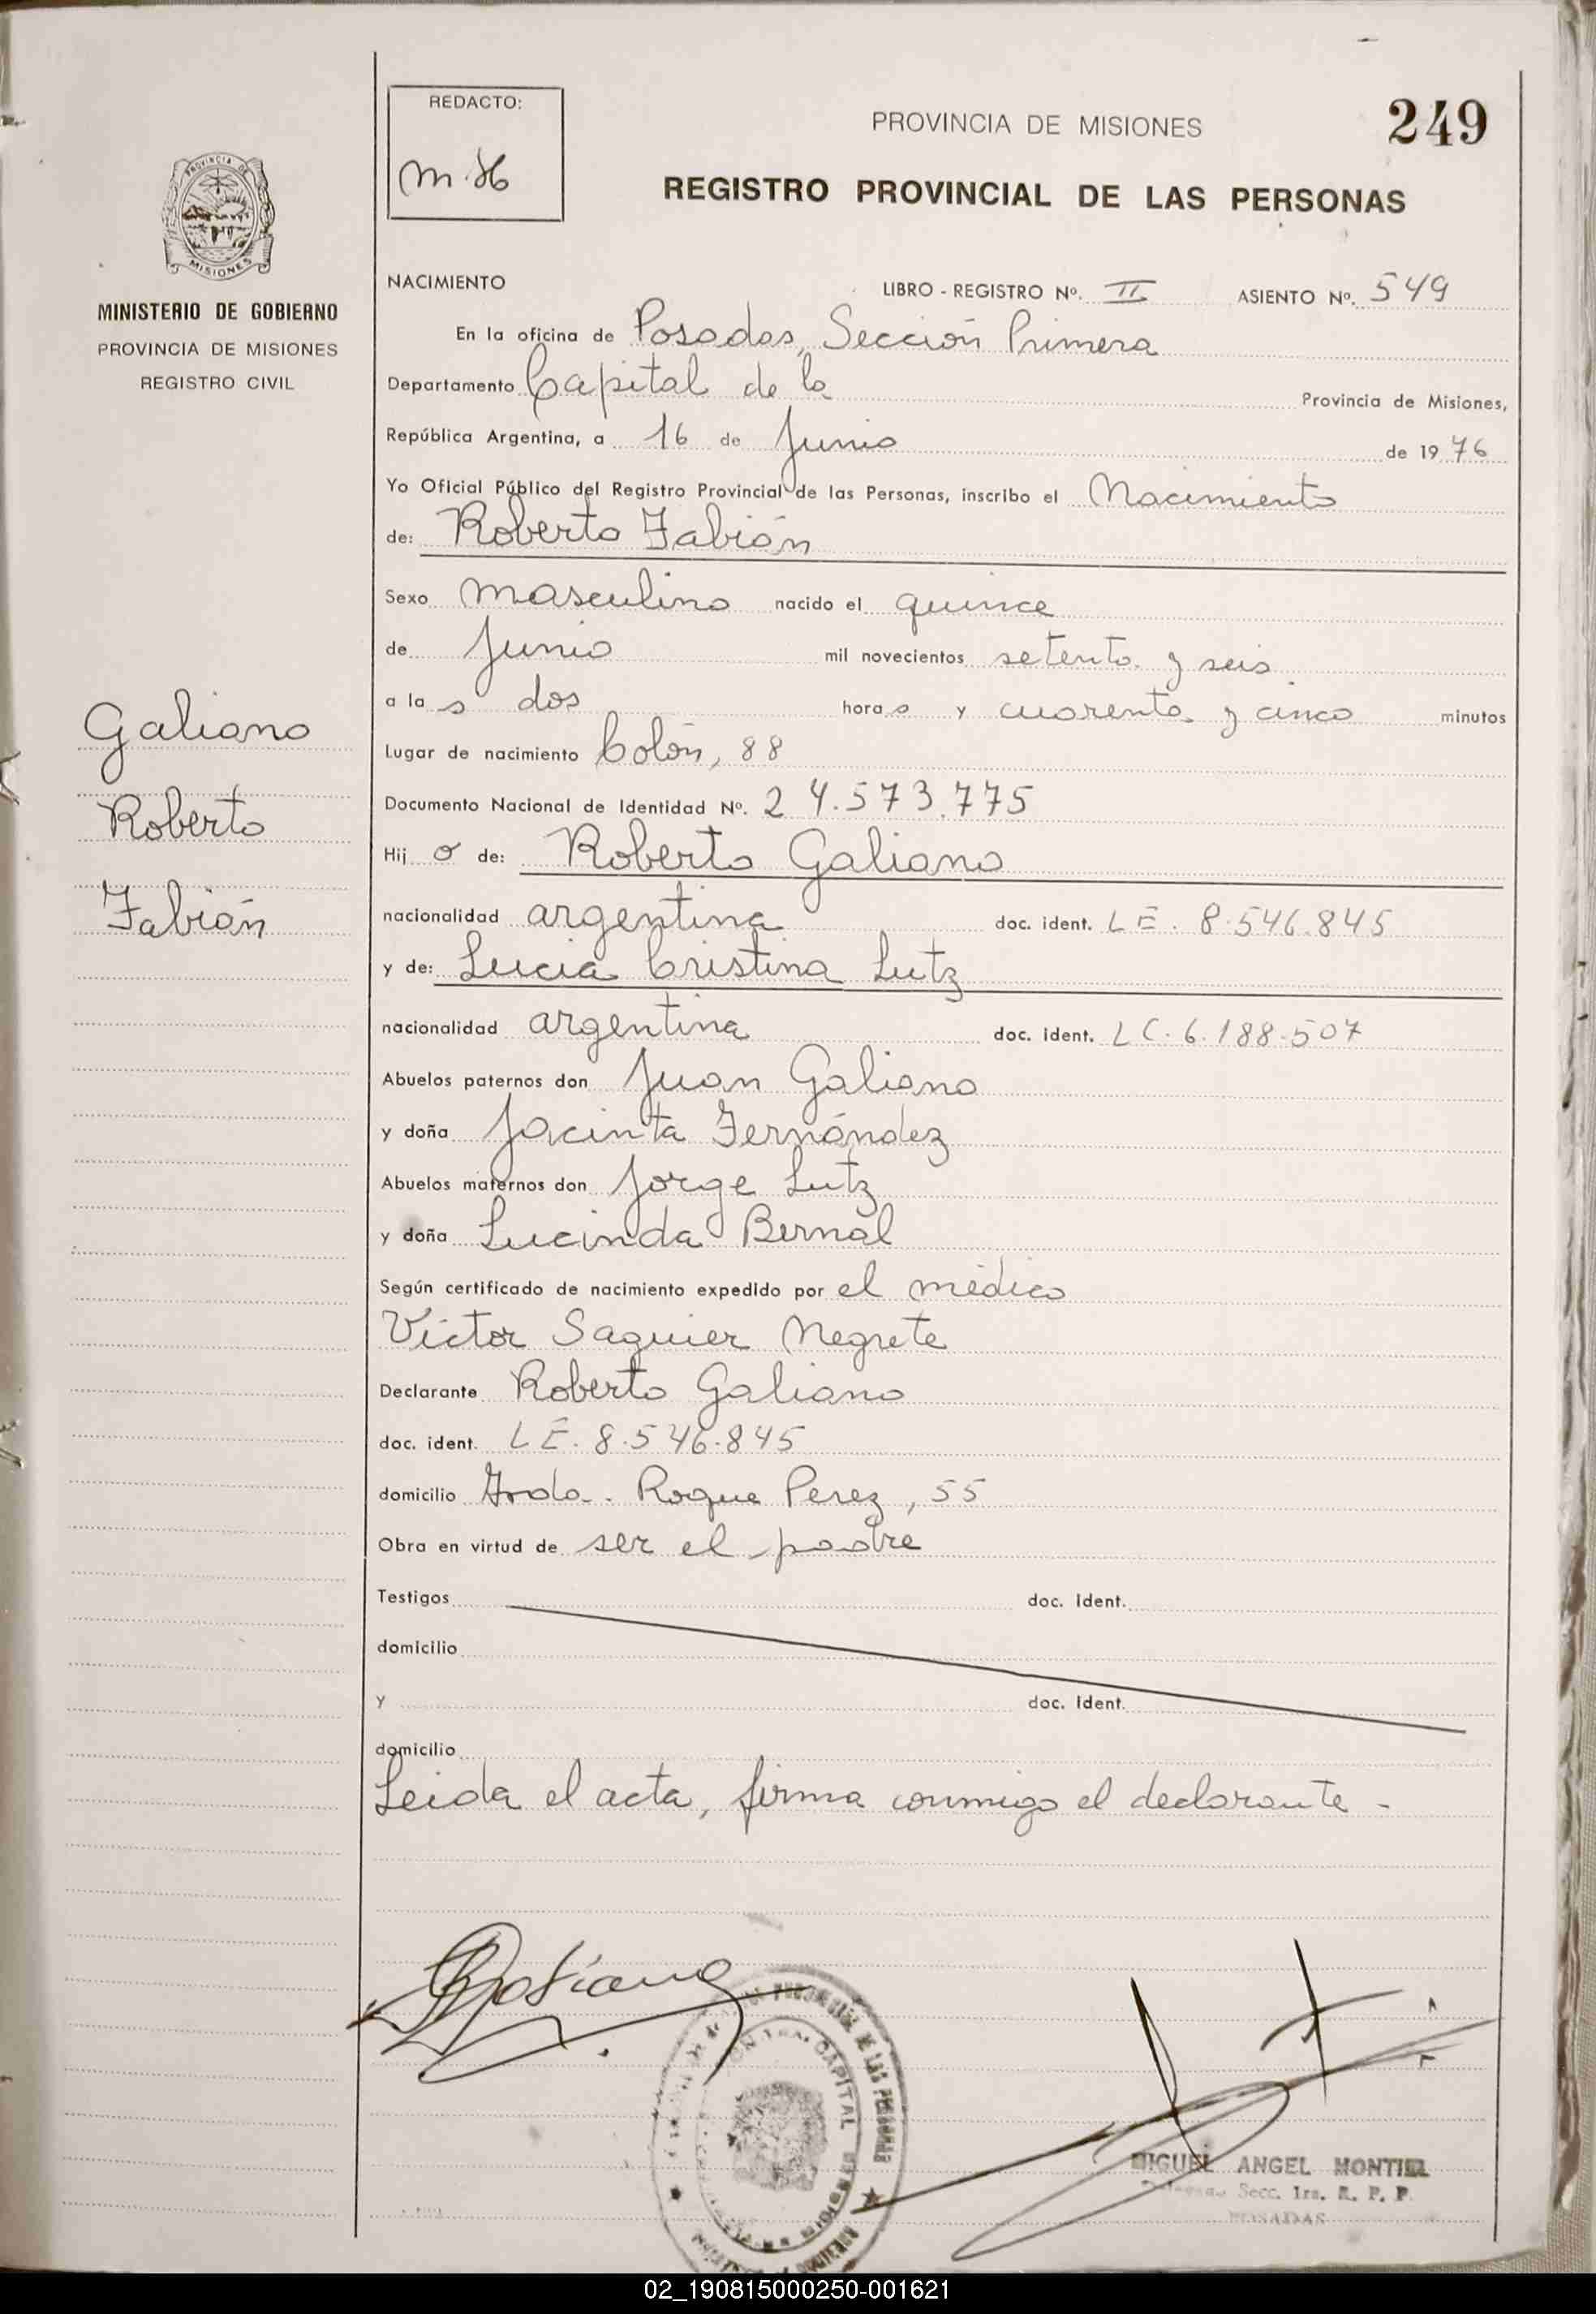 REDACTO:
PROVINCIA DE MISIONES
249
REGISTRO PROVINCIAL DE LAS PERSONAS
PROVINCIA DE
MISIONES
MINISTERIO DE GOBIERNO
PROVINCIA DE MISIONES
REGISTRO CIVIL
Galiano
Roberto
Fabián
NACIMIENTO LIBRO - REGISTRO Nº. II ASIENTO Nº. 549
En la oficina de Posadas, Sección Primera
Departamento Capital de la Provincia de Misiones,
República Argentina, a 16 de Junio de 1976
Yo Oficial Público del Registro Provincial de las Personas, inscribo el Nacimiento
de: Roberto Fabián
Sexo masculino nacido el quince
de Junio mil novecientos setenta y seis
a las dos horas y cuarenta y cinco minutos
Lugar de nacimiento Colón, 88
Documento Nacional de Identidad Nº. 24.573.775
Hijo de: Roberto Galiano
nacionalidad argentina doc. ident. LE. 8.546.845
y de: Lucia Cristina Lutz
nacionalidad argentina doc. ident. LC. 6.188.507
Abuelos paternos don Juan Galiano
y doña Jacinta Fernández
Abuelos maternos don Jorge Lutz
y doña Lucinda Bernal
Según certificado de nacimiento expedido por el médico
Víctor Saguier Negrete
Declarante Roberto Galiano
doc. ident. LE. 8.546.845
domicilio Roque Perez, 55
Obra en virtud de ser el padre
Testigos doc. ident.
domicilio
y doc. ident.
domicilio
Leida el acta, firma conmigo el declarante -
DE LAS PERSONAS
CAPITAL
MIGUEL ANGEL MONTIEL
Secc. 1ra. R. P. P.
POSADAS
02_190815000250-001621